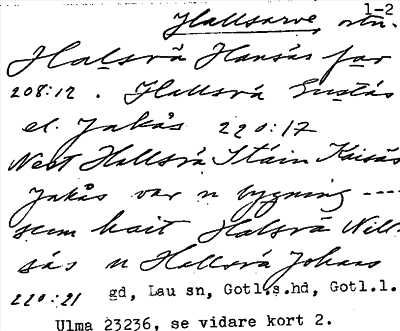 1-2
Hallsarve, ortn.
Halsrä Hansäs far
208:12. Hallsrä Gustäs
el. Jakås 220:17
Nest Hallsrä, Stäin Kaisäs
Jakås var n bygning ----
sum hait Halsrä Nill-
säs n Hallsrä Johans
220:21 gd, Lau sn, Gotl.s.hd, Gotl.l.
Ulma 23236, se vidare kort 2.